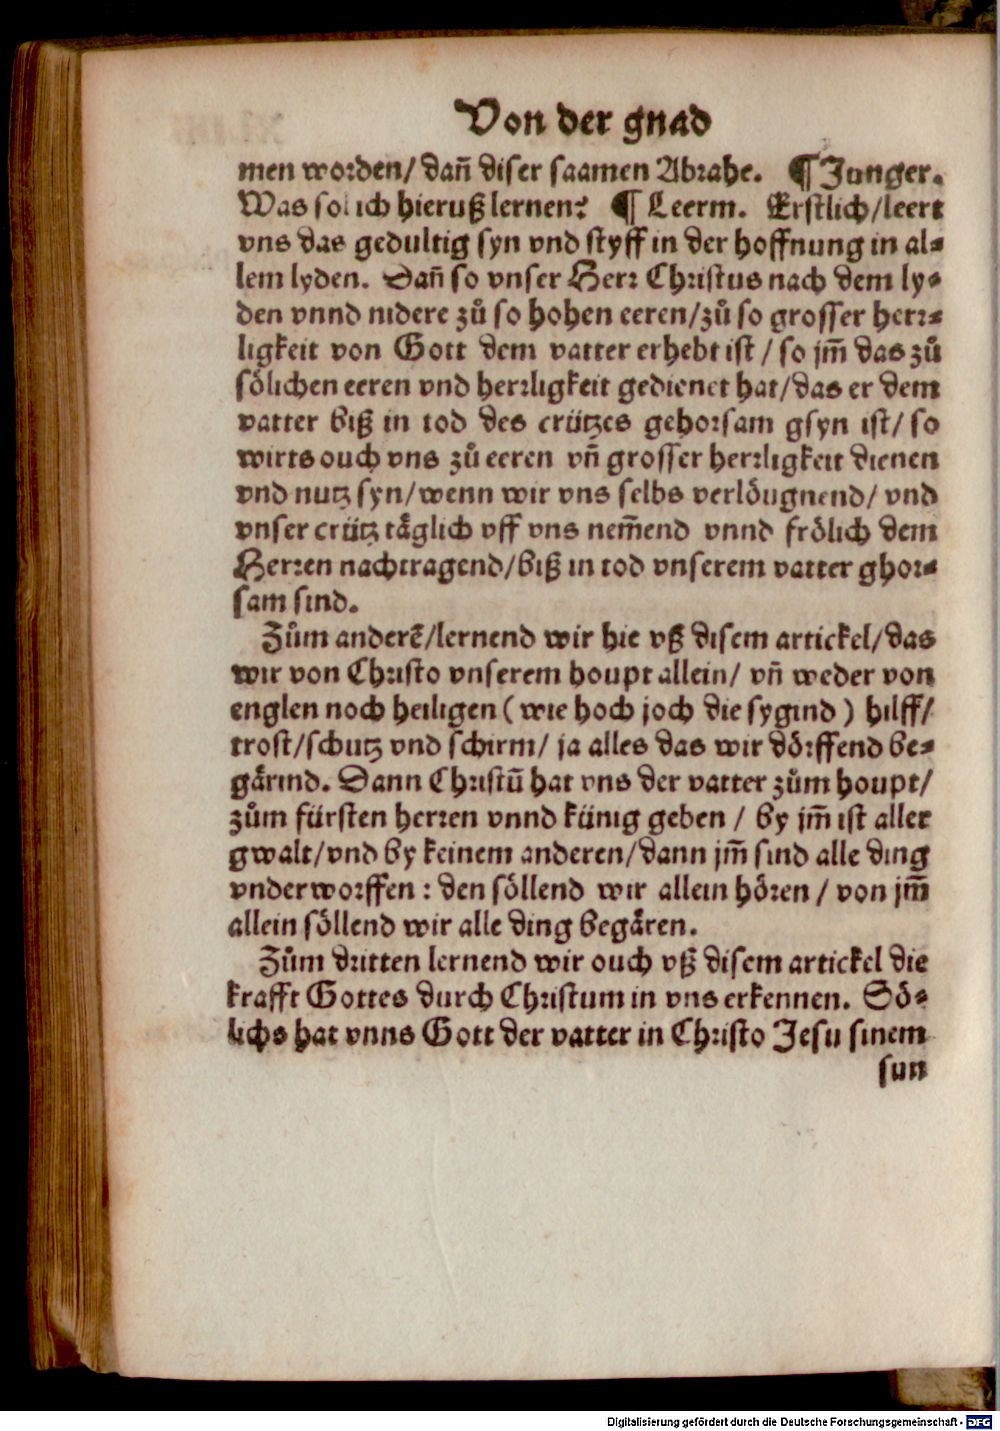 Von der gnad
men worden/ dañ diser saamen Abrahe. ¶ Junger.
Was sol ich hieruß lernen? ¶ Leerm. Erstlich/leert
vns das gedultig syn vnd styff in der hoffnung in al⸗
lem lyden. Dañ so vnser Herr Christus nach dem ly⸗
den vnnd nidere zů so hohen eeren/zů so grosser herr⸗
ligkeit von Gott dem vatter erhebt ist / so jm̃ das zů
sölichen eeren vnd herrligkeit gedienet hat/das er dem
vatter biß in tod des crützes gehorsam gsyn ist/ so
wirts ouch vns zů eeren vñ grosser herrligkeit dienen
vnd nutz syn/wenn wir vns selbs verlöugnend/ vnd
vnser crütz täglich vff vns nem̃end vnnd frölich dem
Herren nachtragend/biß in tod vnserem vatter ghor⸗
sam sind.
Zům anderẽ/lernend wir hie vß disem artickel/das
wir von Christo vnserem houpt allein/ vñ weder von
englen noch heiligen ( wie hoch joch die sygind ) hilff/
trost/schutz vnd schirm/ ja alles das wir dörffend be⸗
gärind. Dann Christũ hat vns der vatter zům houpt/
zům fürsten herren vnnd künig geben / by jm̃ ist aller
gwalt/vnd by keinem anderen/dann jm̃ sind alle ding
vnderworffen : den söllend wir allein hören / von jm̃
allein söllend wir alle ding begären.
Zům dritten lernend wir ouch vß disem artickel die
krafft Gottes durch Christum in vns erkennen. Sö⸗
lichs hat vnns Gott der vatter in Christo Jesu sinem
sun
Digitalisierung gefördert durch die Deutsche Forschungsgemeinschaft - DFG